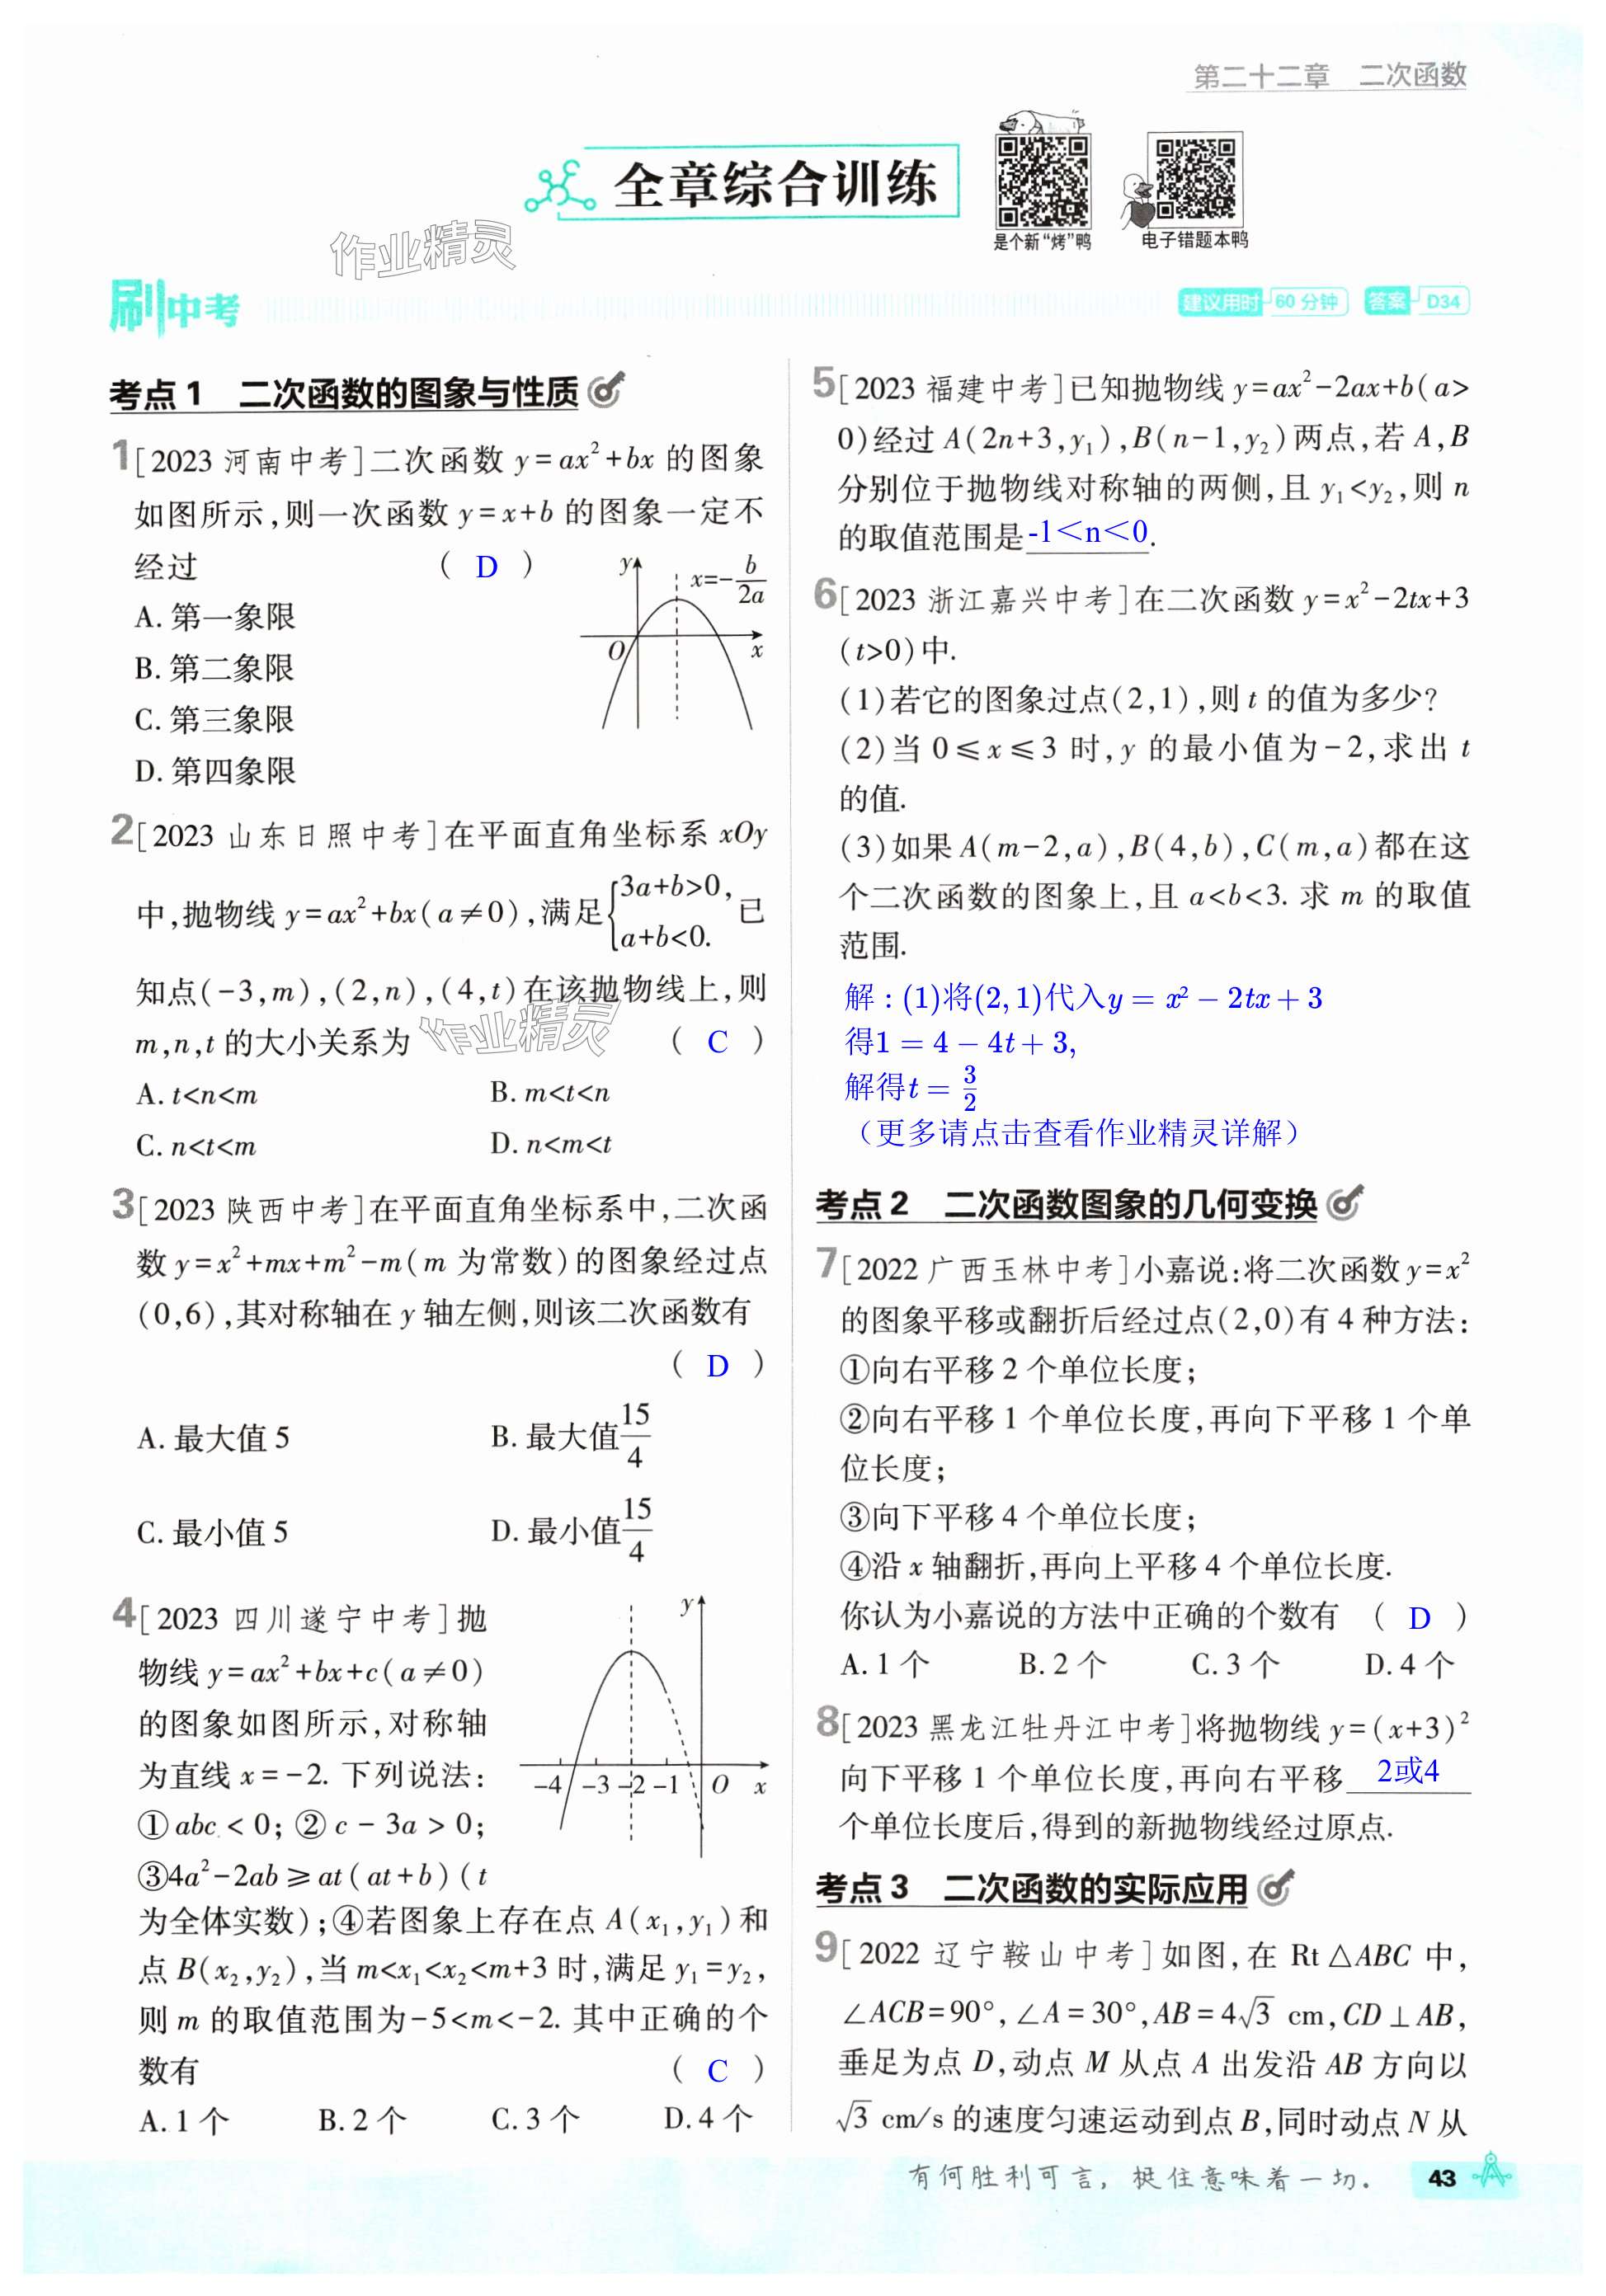 第二十二章 二次函数
全章综合训练
是个新“烤”鸭
电子错题本鸭
作业精灵
刷中考
建议用时 60 分钟 答案 D34
考点 1 二次函数的图象与性质
1[2023 河南中考]二次函数 y=ax²+bx 的图象
如图所示,则一次函数 y=x+b 的图象一定不
经过 ( D )
A. 第一象限
B. 第二象限
C. 第三象限
D. 第四象限
y x=-b/2a
O x
2[2023 山东日照中考]在平面直角坐标系 xOy
中,抛物线 y=ax²+bx(a≠0),满足{3a+b>0, a+b<0. 已
知点(-3,m),(2,n),(4,t)在该抛物线上,则
m,n,t 的大小关系为 ( C )
作业精灵
A. t<n<m B. m<t<n
C. n<t<m D. n<m<t
3[2023 陕西中考]在平面直角坐标系中,二次函
数 y=x²+mx+m²-m(m 为常数)的图象经过点
(0,6),其对称轴在 y 轴左侧,则该二次函数有
( D )
A. 最大值 5 B. 最大值15/4
C. 最小值 5 D. 最小值15/4
4[2023 四川遂宁中考]抛
物线 y=ax²+bx+c(a≠0)
的图象如图所示,对称轴
为直线 x=-2. 下列说法:
①abc<0;②c-3a>0;
③4a²-2ab≥at(at+b)(t
为全体实数);④若图象上存在点 A(x₁,y₁)和
点 B(x₂,y₂),当 m<x₁<x₂<m+3 时,满足 y₁=y₂,
则 m 的取值范围为-5<m<-2. 其中正确的个
数有 ( C )
A. 1 个 B. 2 个 C. 3 个 D. 4 个
y
-4 -3 -2 -1 O x
5[2023 福建中考]已知抛物线 y=ax²-2ax+b(a>
0)经过 A(2n+3,y₁),B(n-1,y₂)两点,若 A,B
分别位于抛物线对称轴的两侧,且 y₁<y₂,则 n
的取值范围是-1<n<0.
6[2023 浙江嘉兴中考]在二次函数 y=x²-2tx+3
(t>0)中.
(1)若它的图象过点(2,1),则 t 的值为多少?
(2)当 0≤x≤3 时,y 的最小值为-2,求出 t
的值.
(3)如果 A(m-2,a),B(4,b),C(m,a)都在这
个二次函数的图象上,且 a<b<3. 求 m 的取值
范围.
解:(1)将(2,1)代入y=x²-2tx+3
得1=4-4t+3,
解得t=3/2
(更多请点击查看作业精灵详解)
考点 2 二次函数图象的几何变换
7[2022 广西玉林中考]小嘉说:将二次函数 y=x²
的图象平移或翻折后经过点(2,0)有 4 种方法:
①向右平移 2 个单位长度;
②向右平移 1 个单位长度,再向下平移 1 个单
位长度;
③向下平移 4 个单位长度;
④沿 x 轴翻折,再向上平移 4 个单位长度.
你认为小嘉说的方法中正确的个数有 ( D )
A. 1 个 B. 2 个 C. 3 个 D. 4 个
8[2023 黑龙江牡丹江中考]将抛物线 y=(x+3)²
向下平移 1 个单位长度,再向右平移 2或4
个单位长度后,得到的新抛物线经过原点.
考点 3 二次函数的实际应用
9[2022 辽宁鞍山中考]如图,在 Rt△ABC 中,
∠ACB=90°,∠A=30°,AB=4√3 cm,CD⊥AB,
垂足为点 D,动点 M 从点 A 出发沿 AB 方向以
√3 cm/s 的速度匀速运动到点 B,同时动点 N 从
有何胜利可言,挺住意味着一切.
43